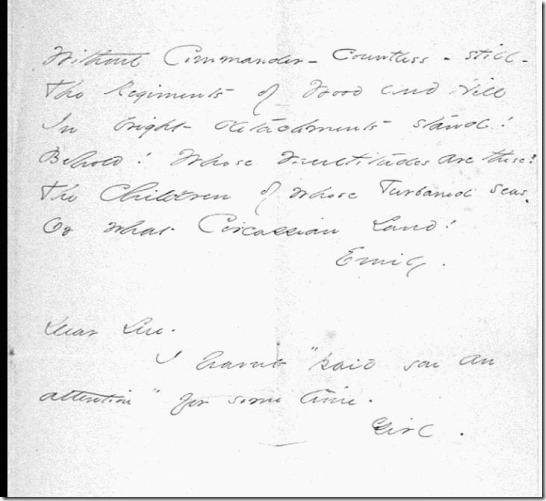 Without Commander - Countless - Still -
The Regiments of Wood and Hill
In bright detachments stand!
Behold! Whose Multitudes are these?
The Children of whose Turbaned Seas,
Or what Circassian Land!
Emily.
Dear Sue.
I havnt "paid you an
attention" for some time.
Girl.